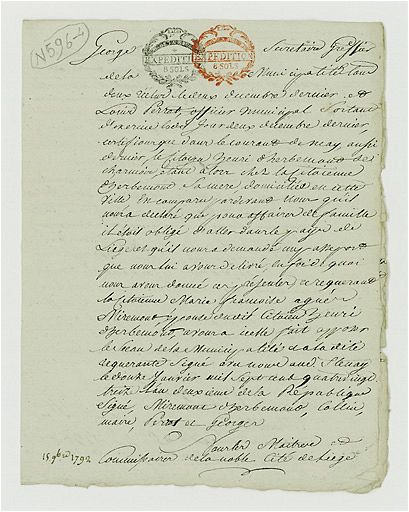 N596-4
EXPEDITION
8 SOLS
EXPEDITION
8 SOLS
George Secretaire Greffier
de la Municipalité
deux decembre dernier et
Louis Perrot, officier municipal Sortant
d'exercice jour deux decembre dernier,
certifions que dans le courant de may, aussi
dernier, le citoyen henri d'herbemont de
charmois étant alors chez la citoyenne
d'herbemont sa mere domiciliée en cette
ville en comparu pardevant nous qu'il
nous a declaré que pour affaire de famille
il était obligé d'aller dans le pays de
Liège et qu'il nous a demandé un passeport
que nous lui avons delivré, en foi de quoi
nous avons donné ce present ce requerant
la citoyenne Marie françoise agnès
Miremont epouse dudit citoyen henri
d'herbemont, avons a icelle fait apposer
le Seau de la Municipalité et a la dite
requerante Signé avec nous
le douze Janvier mil Sept cent quatre vingt
treize l'an deuxieme de la République
Signé, Miremont d'herbemont
maire Perrot et George
Maitre
Commissaires de la noble Cité de Liege
15 9bre 1792